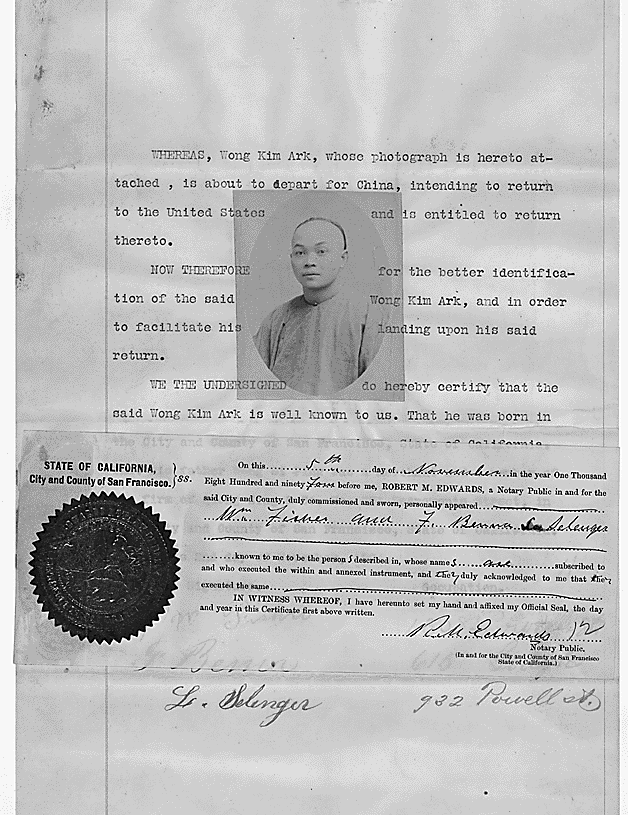 WHEREAS, Wong Kim Ark, whose photograph is hereto at-
tached , is about to depart for China, intending to return
to the United States and is entitled to return
thereto.
NOW THEREFORE for the better identifica-
tion of the said Wong Kim Ark, and in order
to facilitate his landing upon his said
return.
WE THE UNDERSIGNED do hereby certify that the
said Wong Kim Ark is well known to us. That he was born in
the City and County of San Francisco, State of California
STATE OF CALIFORNIA,
City and County of San Francisco. } ss.
On this 5th day of November in the year One Thousand
Eight Hundred and ninety four before me, ROBERT M. EDWARDS, a Notary Public in and for the
said City and County, duly commissioned and sworn, personally appeared
Wm Fisher and F. Benna L. Selenger
known to me to be the person s described in, whose name s are subscribed to
and who executed the within and annexed instrument, and they duly acknowledged to me that they
executed the same
IN WITNESS WHEREOF, I have hereunto set my hand and affixed my Official Seal, the day
and year in this Certificate first above written.
R. M. Edwards
Notary Public.
(In and for the City and County of San Francisco
State of California.)
L. Selenger 932 Powell st.